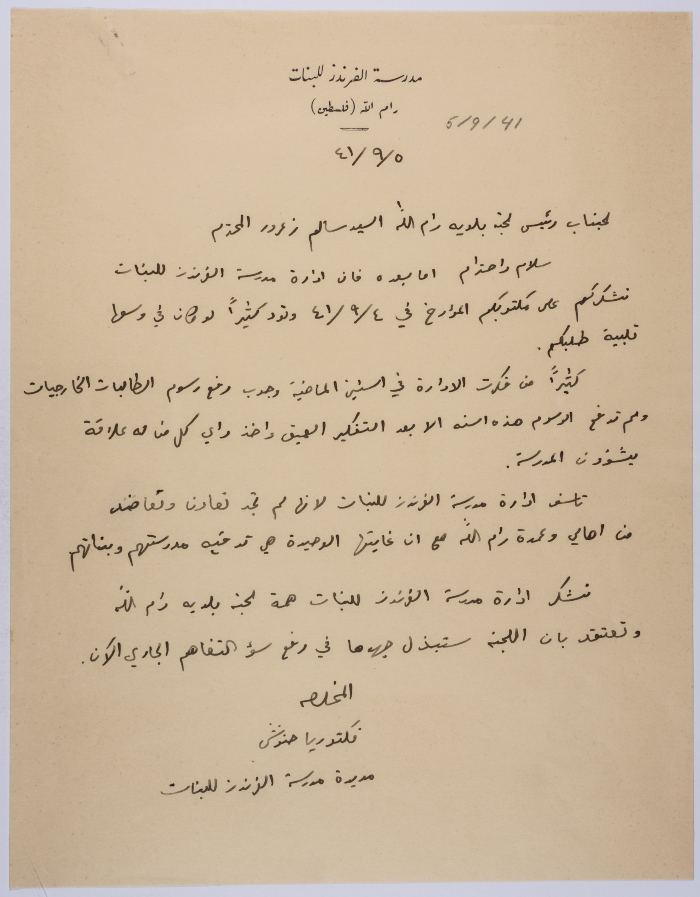 مدرسة الفرندز للبنات
رام الله (فلسطين)
5/9/41
٤١/٩/٥
لجناب رئيس لجنة بلدية رام الله السيد سالم زعرور المحترم
سلام واحترام اما بعده فان ادارة مدرسة الفرندز للبنات
تشكركم على مكتوبكم المؤرخ في ٤١/٩/٤ وتود كثيراً لو كان في وسعها
تلبية طلبكم.
كثيراً ما فكرت الادارة في السنين الماضية وجوب رفع رسوم الطالبات الخارجيات
ولم ترفع الرسوم هذه السنه الا بعد التفكير العميق واخذ راي كل من له علاقة
بشؤون المدرسة.
تاسف ادارة مدرسة الفرندز للبنات لانها لم تجد تعاون وتعاضد
من اهالي وعمدة رام الله مع ان غايتها الوحيدة هي ترقيه مدرستهم وبناتهم
تشكر ادارة مدرسة الفرندز للبنات همة لجنة بلدية رام الله
وتعتقد بان اللجنه ستبذل جهدها في رفع سؤ التفاهم الجاري الآن.
المخلصه
فكتوريا حنوش
مديرة مدرسة الفرندز للبنات